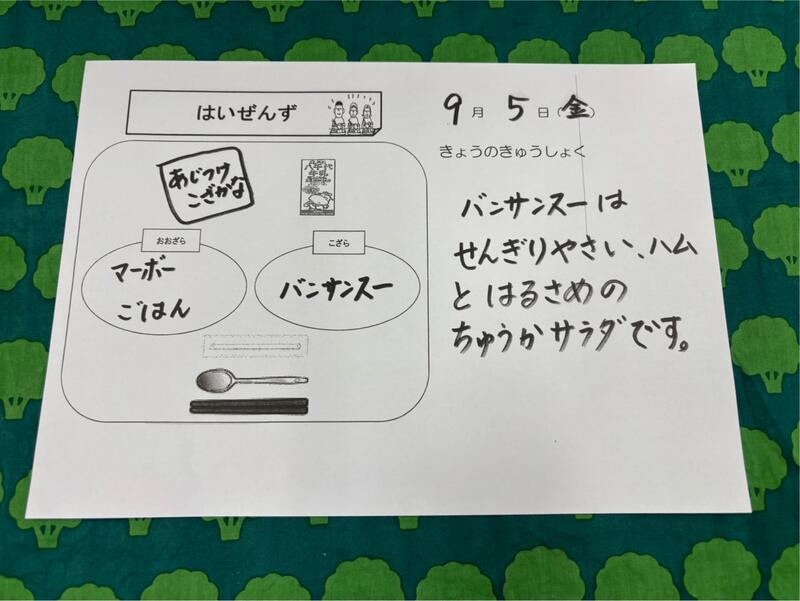 はいぜんず
あじつけ
こざかな
おおざら
マーボー
ごはん
こざら
バンサンスー
9月5日(金)
きょうのきゅうしょく
バンサンスーは
せんぎりやさい、ハム
とはるさめの
ちゅうかサラダです。